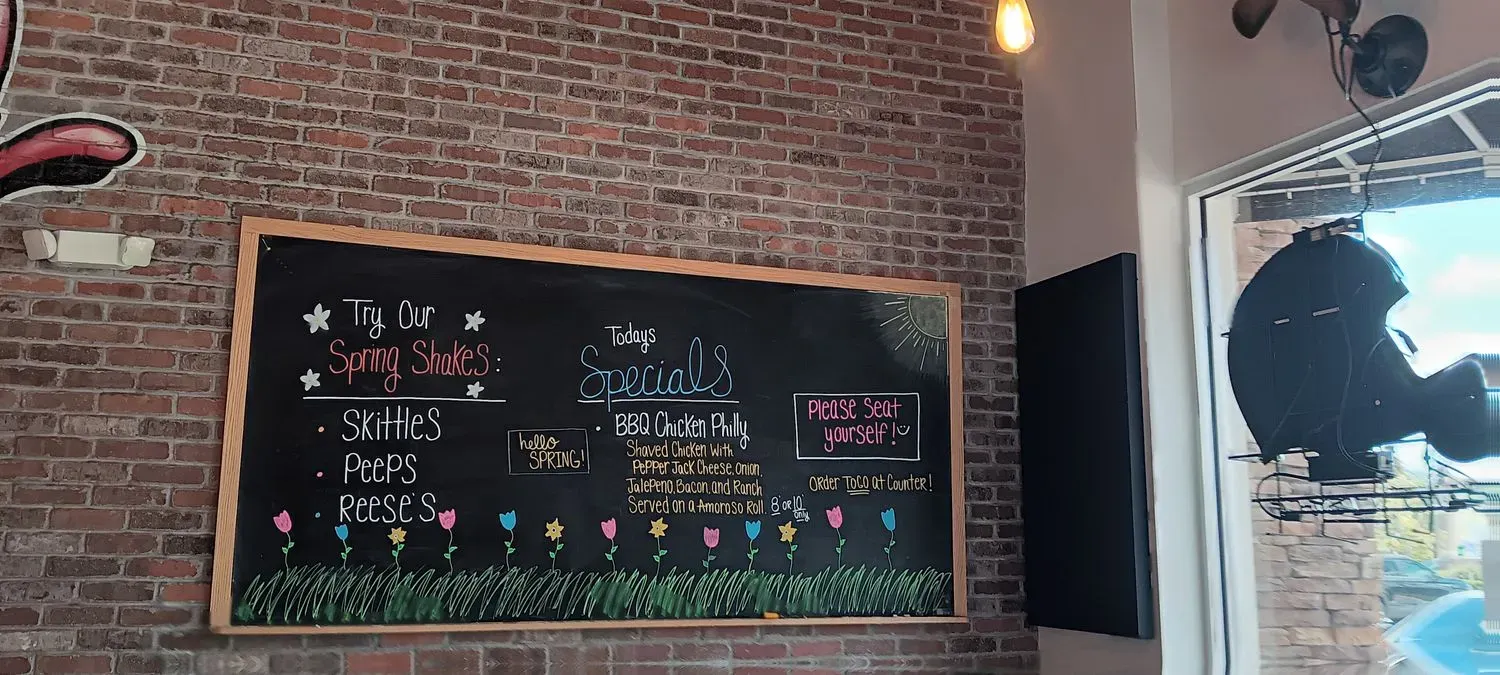 Try Our
Spring Shakes:
• Skittles
• Peeps
• Reese's
hello
SPRING!
Todays
Specials
• BBQ Chicken Philly
Shaved Chicken With
Pepper Jack Cheese, Onion,
Jalepeno, Bacon, and Ranch
Served on a Amoroso Roll. 8" or 10"
only
Please Seat
yourself!
Order ToGo at Counter!